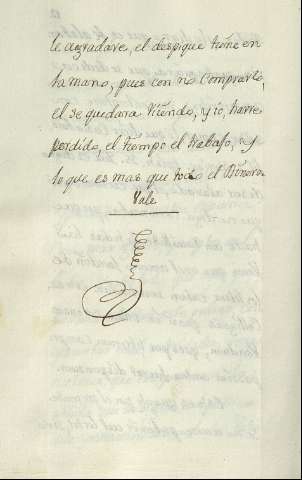 le agradare, el despique tiene en
la mano, pues con no comprarlo,
el se quedara riendo, y io, harre
perdido, el tiempo el trabajo, y
lo que es mas que todo el Dinero.
Vale